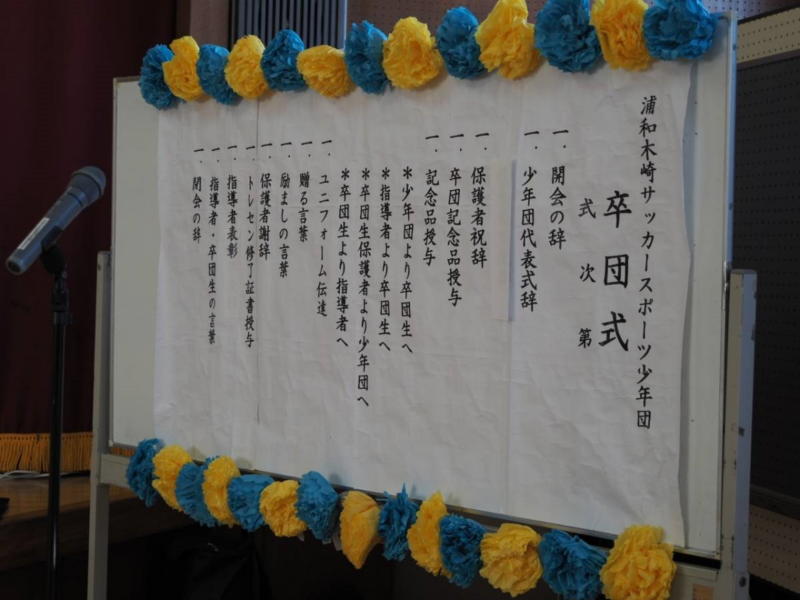 浦和木崎サッカースポーツ少年団
卒団式
式次第
一．開会の辞
一．少年団代表式辞
一．保護者祝辞
一．卒団記念品授与
一．記念品授与
＊少年団より卒団生へ
＊指導者より卒団生へ
＊卒団生保護者より少年団へ
＊卒団生より指導者へ
一．ユニフォーム伝達
一．贈る言葉
一．励ましの言葉
一．保護者謝辞
一．トレセン修了証書授与
一．指導者表彰
一．指導者・卒団生の言葉
一．閉会の辞